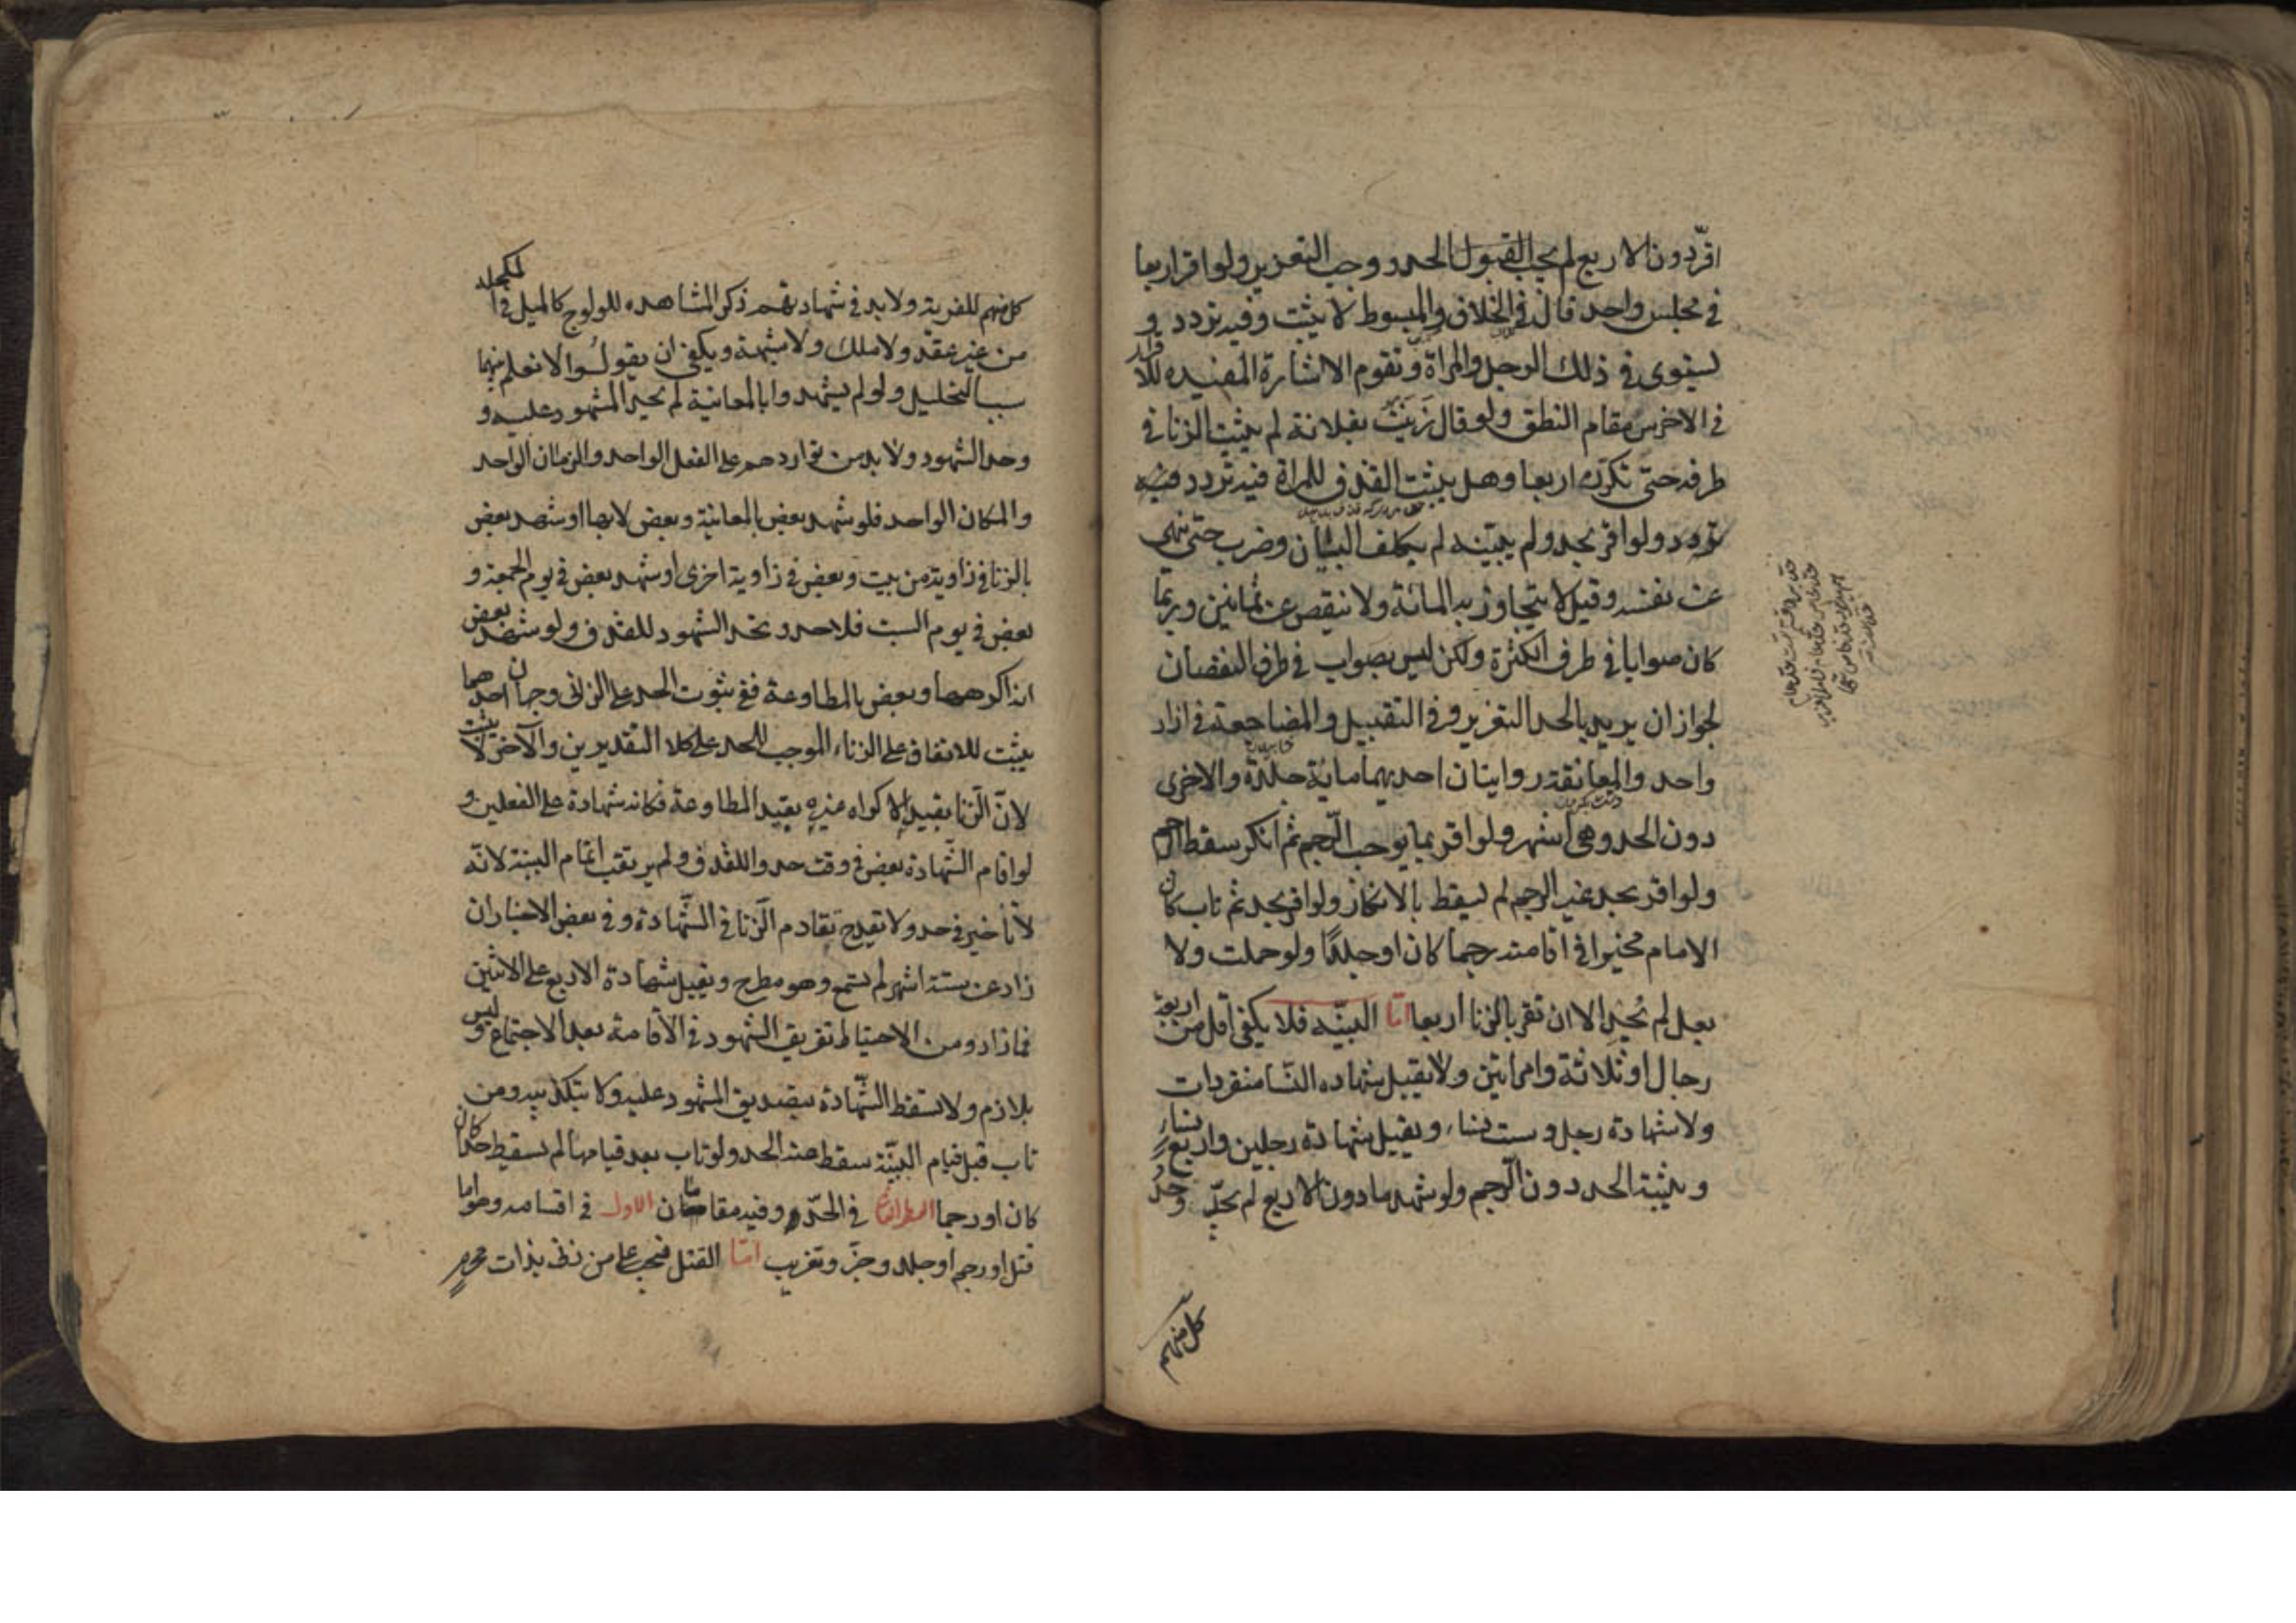 اقرّ دون الاربع لم يجب القبول الحد ووجب التعزير ولو اقر اربعا
في مجلس واحد قال في الخلاف والمبسوط لا يثبت وفيه تردد و
يستوى في ذلك الرجل والمراة وتقوم الاشارة المفيده للاقرار
في الاخرس مقام النطق ولو قال زنيت بفلانة لم يثبت الزنا في
طرفه حتى تكرّره اربعا وهل يثبت القذف للمراة فيه تردد
تردد ولو اقر بحد ولم يبيّنه لم يكلف البيان وضرب حتى ينهى
عن نفسه وقيل لا يتجاوز به المائة ولا ينقص عن ثمانين وربما
كان صوابا في طرف الكثرة ولكن ليس بصواب في طرف النقصان
لجواز ان يريد بالحد التعزير وفي التقبيل والمضاجعة في ازار
واحد والمعانقة روايتان احديهما ماية جلدة والاخرى
دون الحد وهى اشهر ولو اقر بما يوجب الرّجم ثم انكر سقط الرجم
ولو اقر بحد غير الرجم لم يسقط بالانكار ولو اقر بحد ثم تاب كان
الامام مخيرا في اقامته رجما كان او جلدا ولو حملت ولا
بعل لم تحد الا ان تقر بالزنا اربعا امّا البيّنه فلا يكفى اقل من اربعة
رجال او ثلاثة وامراتين ولا يقبل شهاده النسا منفردات
ولا شهادة رجل وست نساء ويقبل شهادة رجلين واربع نساء
ويثبت به الحد دون الرّجم ولو شهد ما دون الاربع لم يحدّ وحدّ
كل منهم
كل منهم للفرية ولا بد في شهادتهم ذكر المشاهده للولوج كالميل في المكحلة
من غير عقد ولا ملك ولا شبهة ويكفى ان يقولوا لا نعلم بينهما
سببا للتحليل ولو لم يشهدوا بالمعاينة لم يحد المشهود عليه و
وحد الشهود ولا بد من تواردهم على الفعل الواحد والزمان الواحد
والمكان الواحد فلو شهد بعض بالمعاينة وبعض لا بها او شهد بعض
بالزنا في زاوية من بيت وبعض في زاوية اخرى او شهد بعض في يوم الجمعة و
بعض في يوم السبت فلا حد وتحد الشهود للقذف ولو شهد بعض
انه اكرهها وبعض بالمطاوعة ففى ثبوت الحد على الزانى وجهان احدهما
يثبت للاتفاق على الزناء الموجب للحد على كلا التقديرين والاخر لا يثبت
لانّ الزنا بقيد الاكراه غيره بقيد المطاوعة فكانه شهادة على الفعلين و
لو اقام الشّهادة بعض في وقت حدوا للقذف ولم يرتقب اتمام البينة لانّه
لا تأخير في حد ولا يقدح تقادم الزنا في الشّهادة وفي بعض الاخبار ان
زاد عن ستة اشهر لم تسمع وهو مطرح ويقبل شهادة الاربع على الاثنين
فما زاد ومن الاحتياط تفريق الشهود في الاقامة بعد الاجتماع وليس
بلازم ولا يسقط الشّهادة بتصديق المشهود عليه ولا بتكذيبه ومن
تاب قبل قيام البيّنة سقط عنه الحد ولو تاب بعد قيامها لم يسقط حدا كان
كان او رجما النظر الثانى في الحدّ وفيه مقامان الاول في اقسامه وهو اما
قتل او رجم او جلد وجز وتغريب امّا القتل فيجب على من زنى بذات محرم